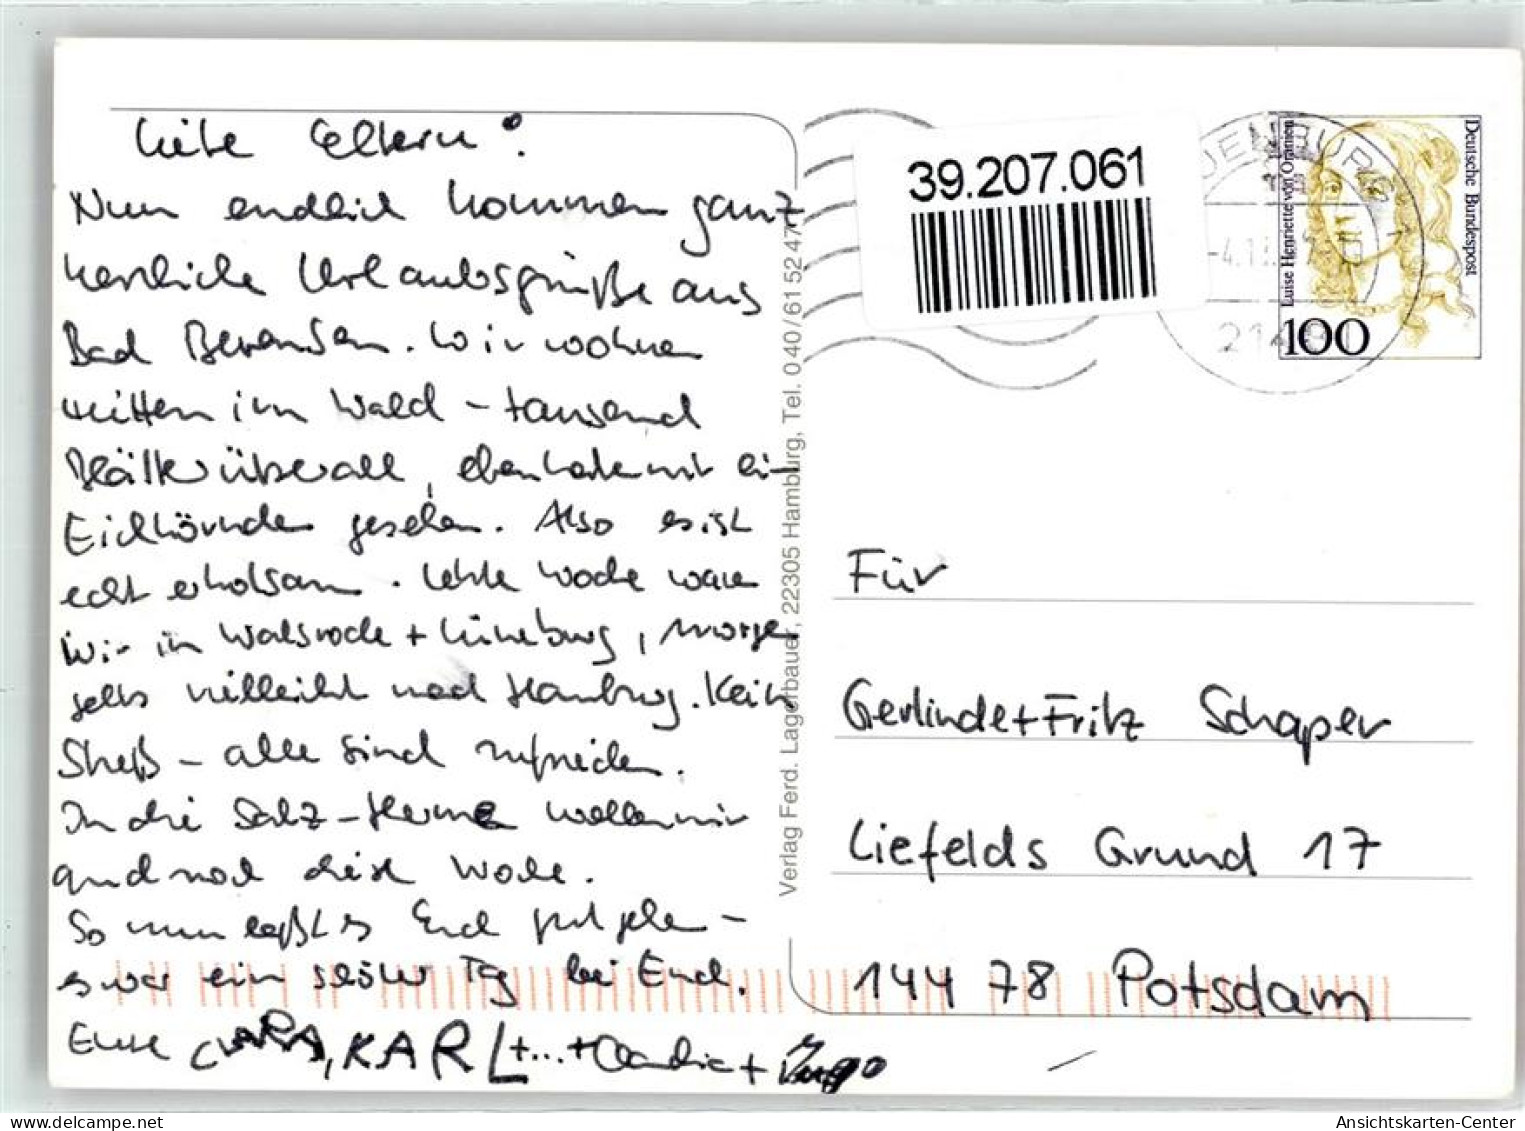 Liebe Eltern!
Nun endlich kommen ganz
herzliche Urlaubsgrüße aus
Bad Bevensen. Wir wohnen
mitten im Wald - tausend
Blätter überall, eben hatten wir ein
Eichhörnchen gesehen. Also es ist
echt erholsam. Letzte Woche waren
wir in Walsrode + Lüneburg, morgen
geht's vielleicht nach Hamburg. Kein
Streß - alle sind zufrieden.
In die Salz-Therme wollen wir
auch noch diese Woche.
So nun laßt es Euch gut gehen -
es war ein schöner Tag bei Euch.
Eure CLARA, KARL +...+ Claudia + Ingo
Verlag Ferd. Lagerbauer, 22305 Hamburg, Tel. 0 40 / 61 52 47
39.207.061
Deutsche Bundespost
Luise Henriette von Oranien
100
Für
Gerlinde + Fritz Schaper
Liefelds Grund 17
14478 Potsdam
Ansichtskarten-Center